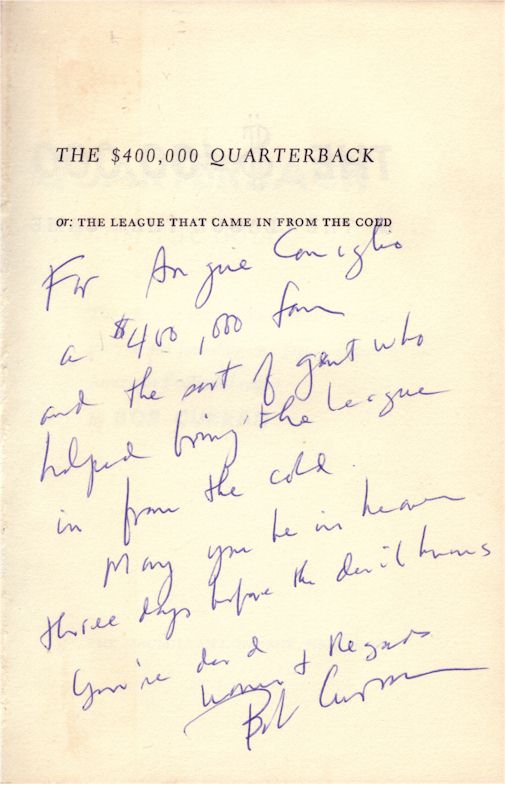 THE $400,000 QUARTERBACK
or: THE LEAGUE THAT CAME IN FROM THE COLD
For Angie Coniglio
a $400,000 fan
and the sort of gent who
helped bring the league
in from the cold.
May you be in heaven
three days before the devil knows
you're dead
Warmest Regards
Bob Curran